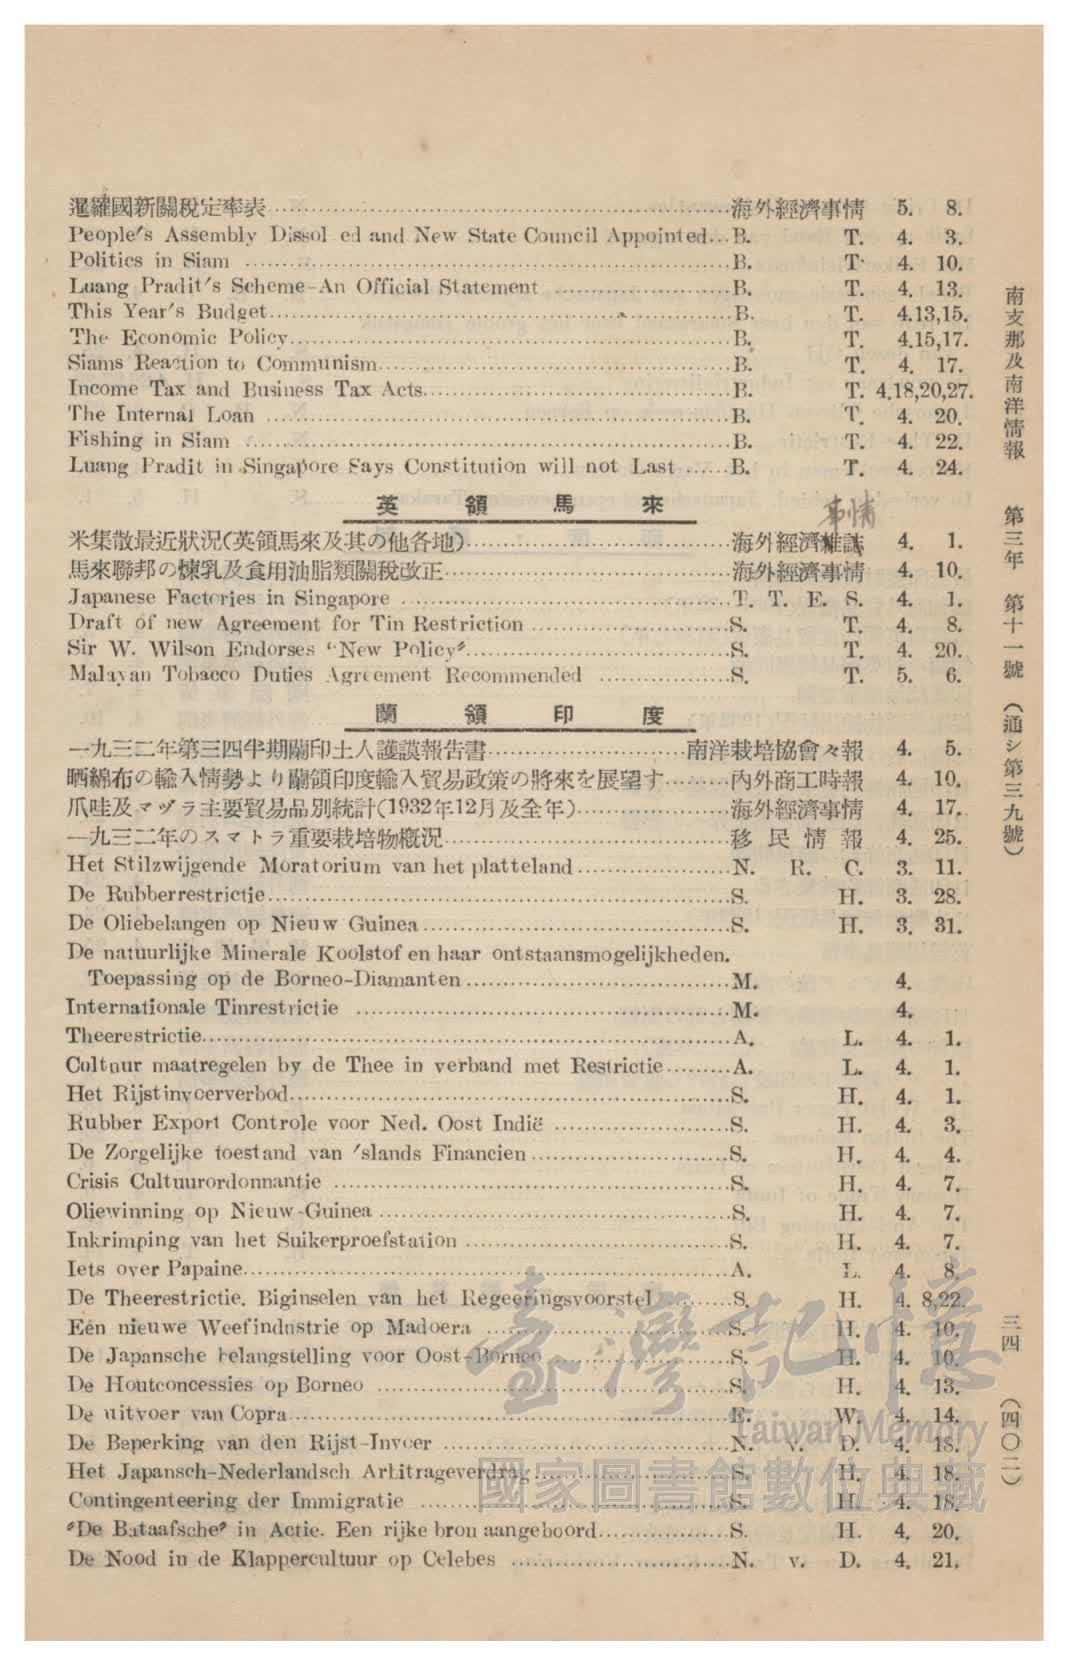 暹羅國新關稅定率表……海外經濟事情 5. 8.
People's Assembly Dissol ed and New State Council Appointed…B. T. 4. 3.
Politics in Siam ……B. T. 4. 10.
Luang Pradit's Scheme-An Official Statement ……B. T. 4. 13.
This Year's Budget……B. T. 4.13,15.
The Economic Policy……B. T. 4.15,17.
Siams Reaction to Communism……B. T. 4. 17.
Income Tax and Business Tax Acts……B. T. 4.18,20,27.
The Internal Loan ……B. T. 4. 20.
Fishing in Siam ……B. T. 4. 22.
Luang Pradit in Singapore Says Constitution will not Last ……B. T. 4. 24.
英領馬來
事情
米集散最近狀況(英領馬來及其の他各地)……海外經濟雜誌 4. 1.
馬來聯邦の煉乳及食用油脂類關稅改正……海外經濟事情 4. 10.
Japanese Factories in Singapore ……T. T. E. S. 4. 1.
Draft of new Agreement for Tin Restriction ……S. T. 4. 8.
Sir W. Wilson Endorses “New Policy”……S. T. 4. 20.
Malayan Tobacco Duties Agreement Recommended ……S. T. 5. 6.
蘭領印度
一九三二年第三四半期蘭印土人護謨報告書……南洋栽培協會々報 4. 5.
晒綿布の輸入情勢より蘭領印度輸入貿易政策の將來を展望す……內外商工時報 4. 10.
爪哇及マヅラ主要貿易品別統計(1932年12月及全年)……海外經濟事情 4. 17.
一九三二年のスマトラ重要栽培物概況……移民情報 4. 25.
Het Stilzwijgende Moratorium van het platteland……N. R. C. 3. 11.
De Rubberrestrictie……S. H. 3. 28.
De Oliebelangen op Nieuw Guinea……S. H. 3. 31.
De natuurlijke Minerale Koolstof en haar ontstaansmogelijkheden.
Toepassing op de Borneo-Diamanten……M. 4.
Internationale Tinrestrictie ……M. 4.
Theerestrictie……A. L. 4. 1.
Cultuur maatregelen by de Thee in verband met Restrictie……A. L. 4. 1.
Het Rijstinvoerverbod……S. H. 4. 1.
Rubber Export Controle voor Ned. Oost Indië ……S. H. 4. 3.
De Zorgelijke toestand van 'slands Financien……S. H. 4. 4.
Crisis Cultuurordonnantie ……S. H. 4. 7.
Oliewinning op Nieuw-Guinea……S. H. 4. 7.
Inkrimping van het Suikerproefstation ……S. H. 4. 7.
Iets over Papaine……A. L. 4. 8.
De Theerestrictie. Biginselen van het Regeeringsvoorstel ……S. H. 4. 8,22.
Eén nieuwe Weefindustrie op Madoera ……S. H. 4. 10.
De Japansche belangstelling voor Oost-Borneo ……S. H. 4. 10.
De Houtconcessies op Borneo ……S. H. 4. 13.
De uitvoer van Copra……E. W. 4. 14.
De Beperking van den Rijst-Invoer ……N. v. D. 4. 18.
Het Japansch-Nederlandsch Arbitrageverdrag……S. H. 4. 18.
Contingenteering der Immigratie ……S. H. 4. 18.
“De Bataafsche” in Actie. Een rijke bron aangeboord……S. H. 4. 20.
De Nood in de Klappercultuur op Celebes ……N. v. D. 4. 21.
南支那及南洋情報 第三年 第十一號 (通シ第三九號) 三四 (四〇二)
臺灣記憶
Taiwan Memory
國家圖書館數位典藏